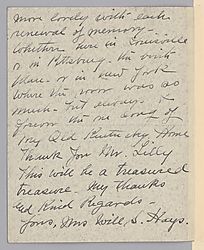 more lovely with each
renewal of memory -
whether here in Louisville
or in Pittsburg. the
place - or in New York
where the was as
much - but always
the one song of
My Old Kentucky Home
Thank you Mr. Lilly
This will be a treasured
treasure - My Thanks
and Kind Regards -
Yours, Mrs Will. S. Hays.